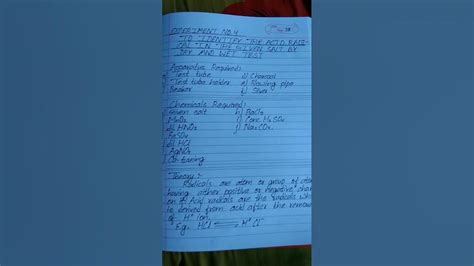 EXPERIMENT NO.4
TO IDENTIFY THE ACID RADI-
CAL IN THE GIVEN SALT BY
DRY AND WET TEST
Apparatus Required:
Test tube d) Charcoal
Test tube holder e) Blowing pipe
Beaker f)
Chemicals Required:
Given salt h) BaCl2
MnO2 i) Conc. H2SO4
HNO3 j) Na2CO3
FeSO4
HCl
AgNO3
Cu turning
Theory :-
Radicals are atom or group of atom
having either positive or negative
on it. Acid radicals are the radicals
is derived from acid after the
of H+ ion.
Eg. HCl H+ Cl-